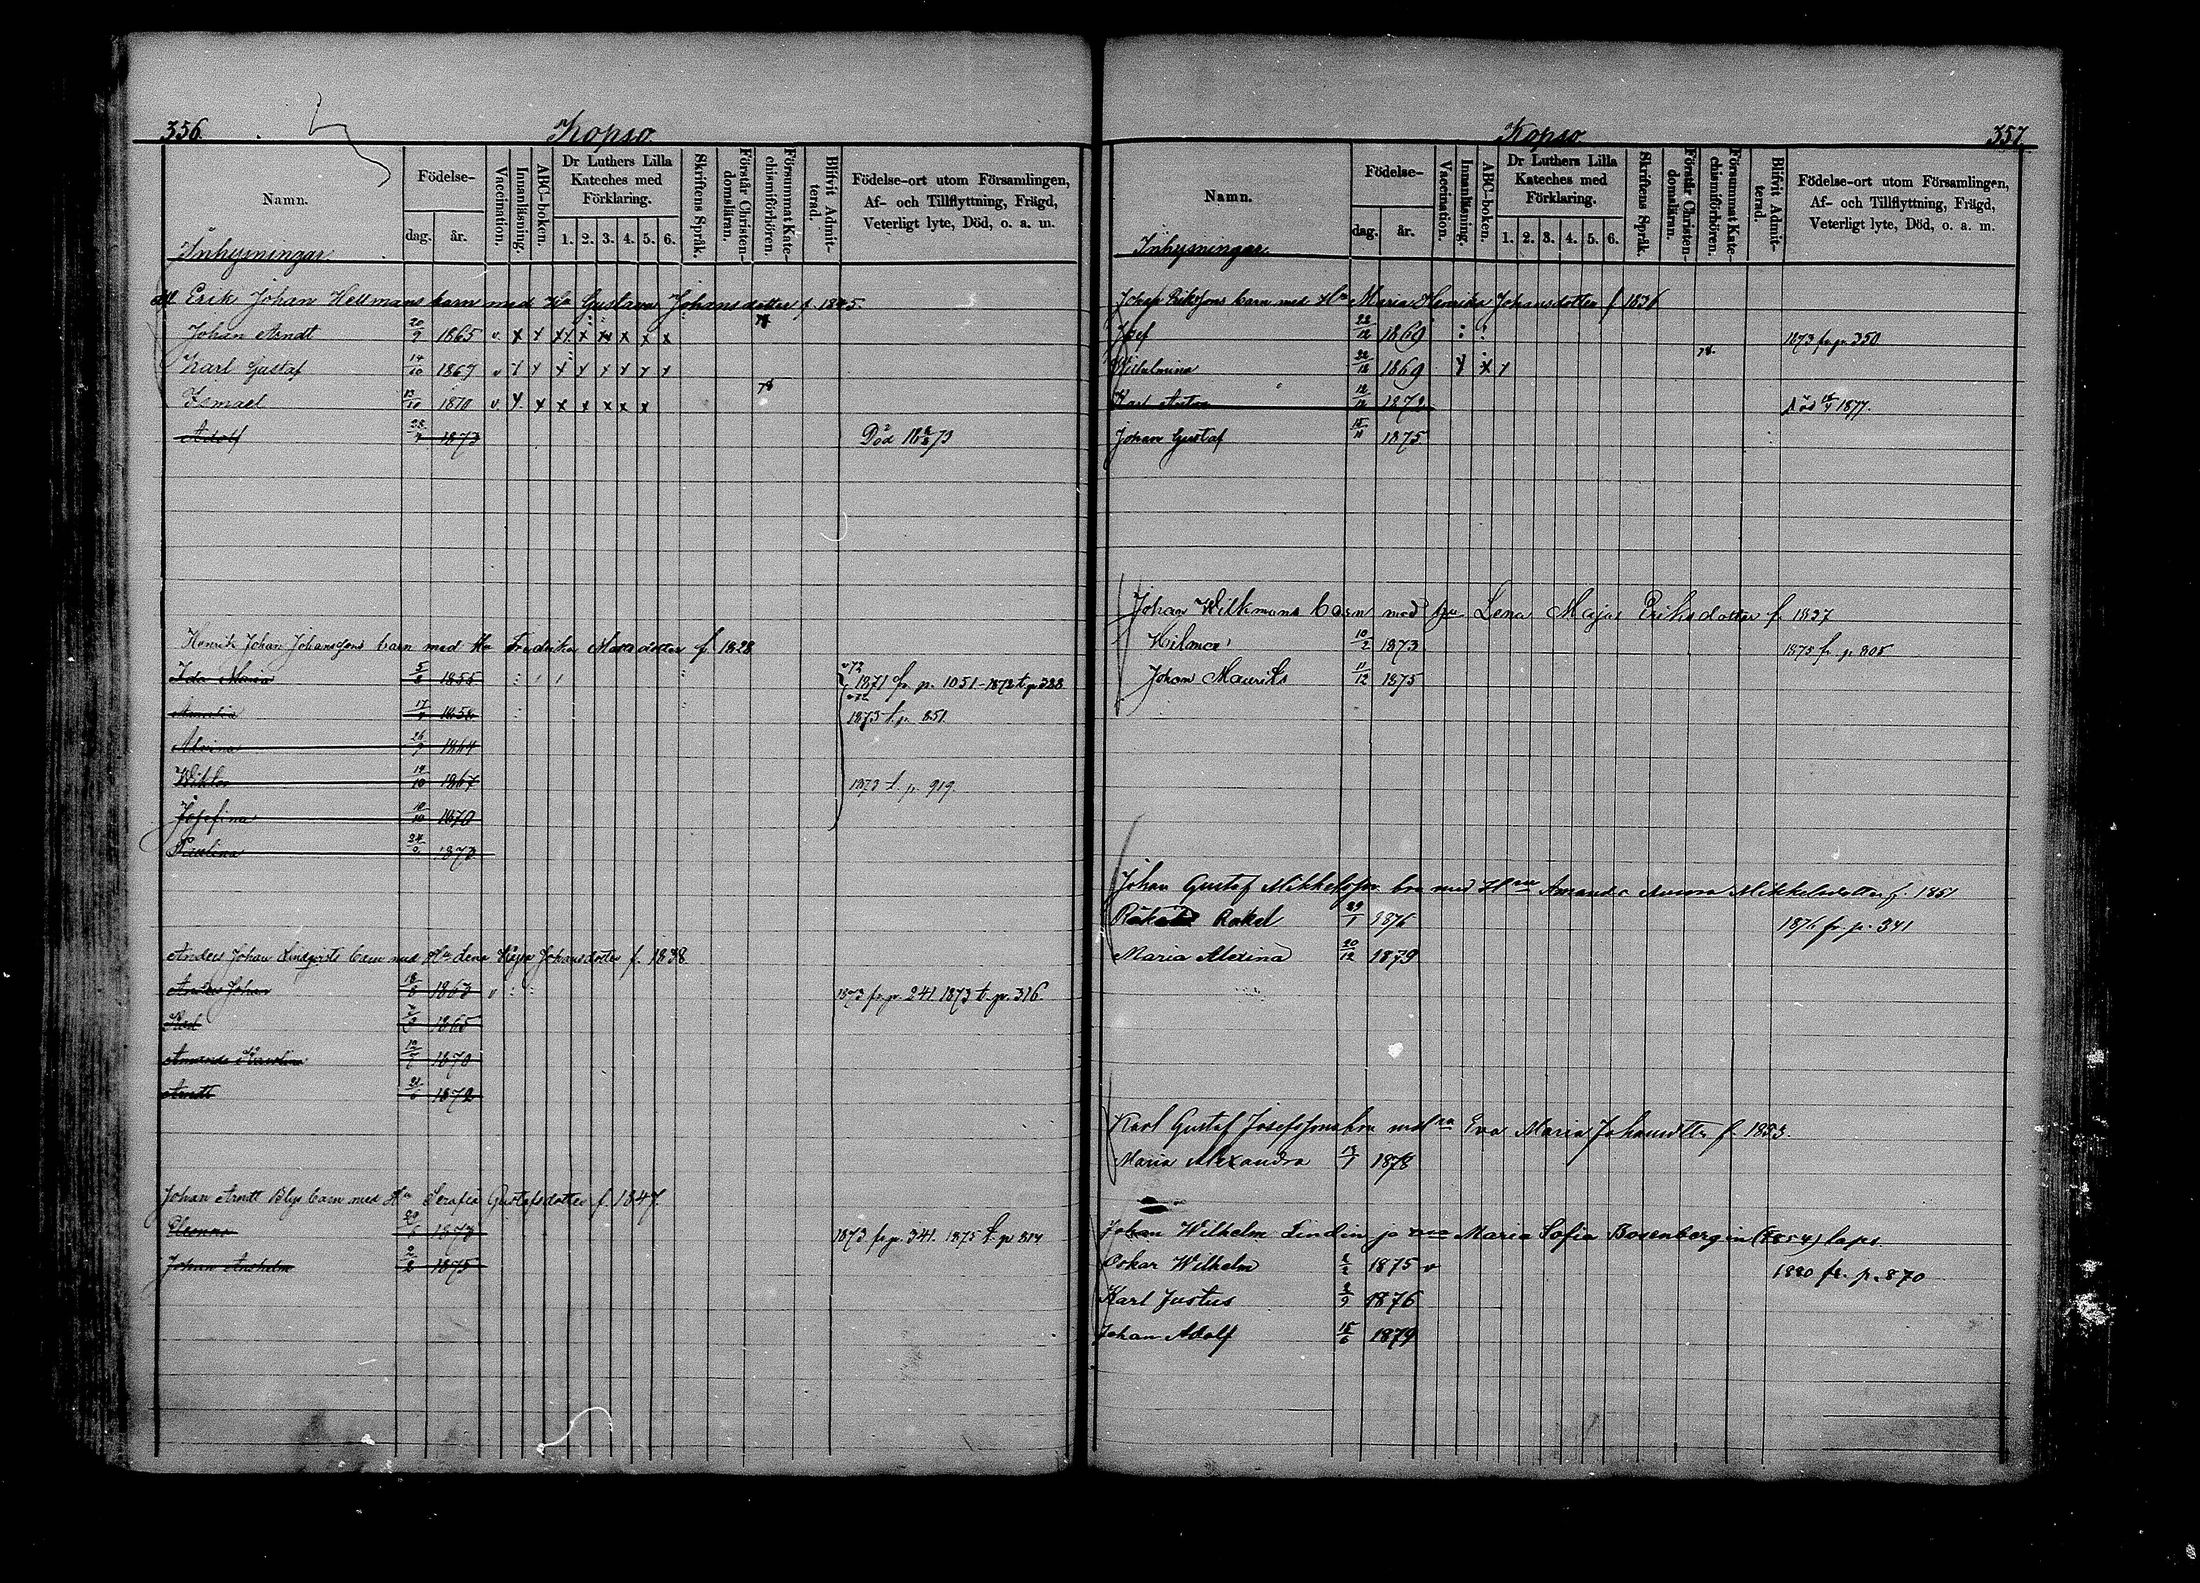 356.
Kopso.
Namn.
Födelse-
dag.
år.
Vaccination.
Innanläsning.
ABC-boken.
Dr Luthers Lilla
Kateches med
Förklaring.
1. 2. 3. 4. 5. 6.
Skriftens Språk.
Förstår Christen-
domsläran.
Försummat Kate-
chismiförhören.
Blifvit Admit-
terad.
Födelse-ort utom Församlingen,
Af- och Tillflyttning, Frägd,
Veterligt lyte, Död, o. a. m.
Inhysningar
Erik Johan Hellmans barn med Hu Gustava Johansdotter f. 1845.
Johan Arndt 20/9 1865 v. x x x x x x x x
Karl Gustaf 14/10 1867 v x x x x x x x x
Ismael 1870 v. x x x x x x x
Adolf 1873 Död 73
Henrik Johan Johanssons barn med Hu Fredrika dotter f. 1828
Ida Maria 5/8 1855 1871 fr. p. 1051 - 1872 t. p. 388
Amalia 17/ 1858 1873 t. p. 851
Alvina 26/ 1864
Wiktor 1867 1873 t. p. 919.
Josefina 1870
Paulina 1873
Anders Johan Lindqvists barn med Hu Lena Kajsa Johansdotter f. 1838
Anders Johan 1863 v 1873 fr. p. 241 1873 t. p. 316
Karl 1865
Amanda Karolina 12/7 1870
Arndt 21/ 1872
Johan Arndt Blys barn med Hu Serafia Gustafsdotter f. 1847.
1873 1873 fr. p. 341. 1875 t. p. 814
Johan Anshelm 2/2 1875
Kopso
357.
Namn.
Födelse-
dag.
år.
Vaccination.
Innanläsning.
ABC-boken.
Dr Luthers Lilla
Kateches med
Förklaring.
1. 2. 3. 4. 5. 6.
Skriftens Språk.
Förstår Christen-
domsläran.
Försummat Kate-
chismiförhören.
Blifvit Admit-
terad.
Födelse-ort utom Församlingen,
Af- och Tillflyttning, Frägd,
Veterligt lyte, Död, o. a. m.
Inhysningar.
Johan Erikssons barn med Hu Maria Henrika Johansdotter f. 1836
Josef 22/12 1869 1873 fr. p. 350
Wilhelmina 22/12 1869 x x x 78.
Karl Anton 12/12 1872 Död 1877.
Johan Gustaf 1875
Johan Wilkmans barn med hu Lena Maja Eriksdotter f. 1837
Hilma 10/2 1873 1875 fr. p. 805
Johan Maurits 11/12 1875
Johan Gustaf Mikkelsson brn med Hu Amanda Aurora Mikkelsdotter f. 1851
Rakel 29/1 1876 1876 fr. p. 341
Maria Alexina 20/12 1879
Karl Gustaf Josefssons brn med Eva Maria Johansdtter f. 1853.
Maria Alexandra 1878
Johan Wilhelm Lindin ja Maria Sofia Bosenbergin (1854) lapset
Oskar Wilhelm 2/2 1875 v 1880 fr. p. 870
Karl Justus 2/9 1876
Johan Adolf 15/6 1879